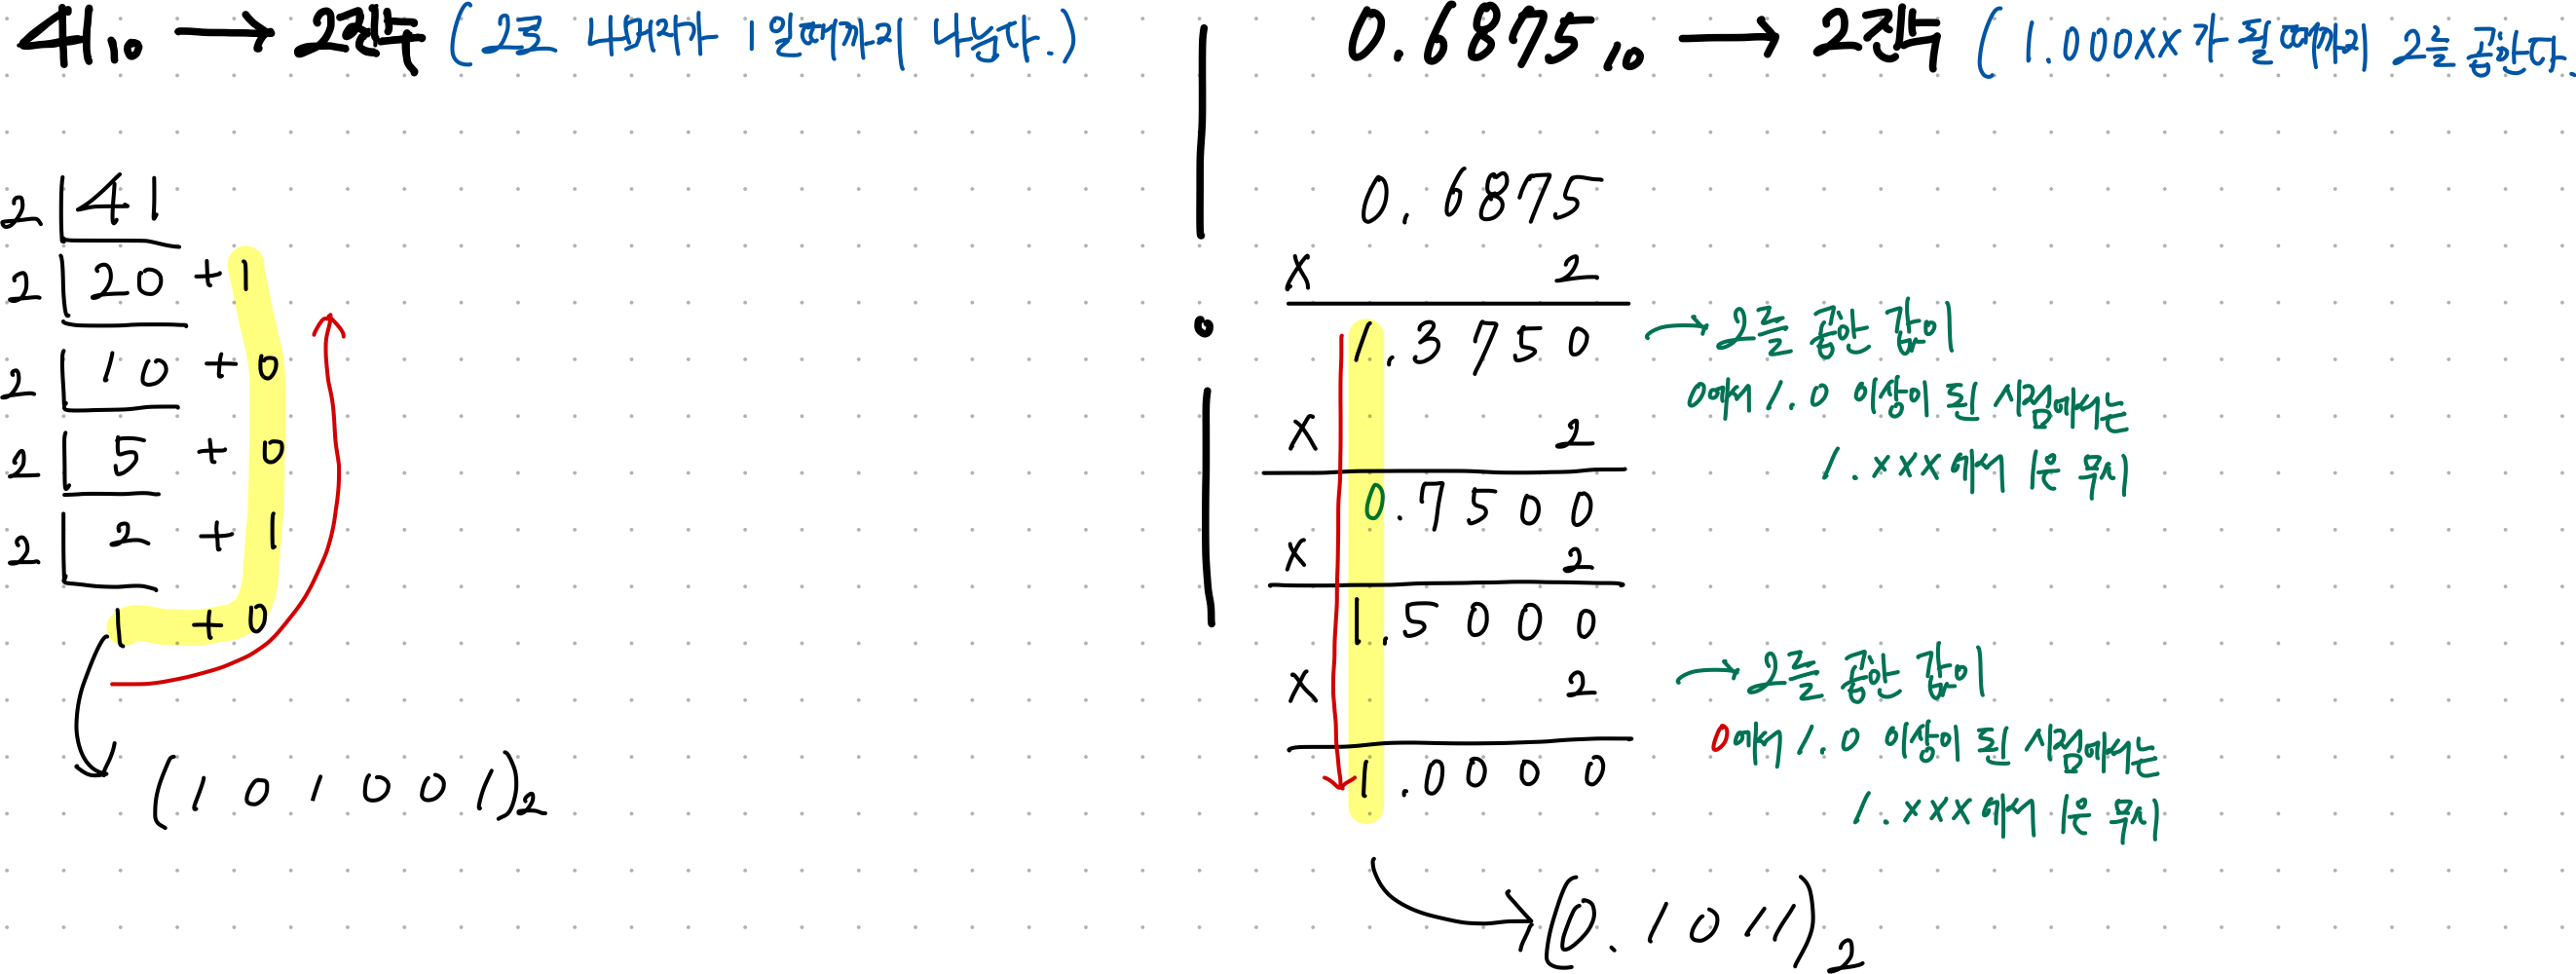 41₁₀ → 2진수 (2로 나머지가 1일때까지 나눈다.)
2 41
2 20 + 1
2 10 + 0
2 5 + 0
2 2 + 1
1 + 0
(1 0 1 0 0 1)₂
0.6875₁₀ → 2진수 (1.000xx가 될때까지 2를 곱한다.
0.6875
x 2
1.3750 → 2를 곱한 값이
0에서 1.0 이상이 된 시점에서는
1.xxx에서 1은 무시
x 2
0.7500
x 2
1.5000
x 2
→ 2를 곱한 값이
0에서 1.0 이상이 된 시점에서는
1.xxx에서 1은 무시
1.0000
(0.1011)₂